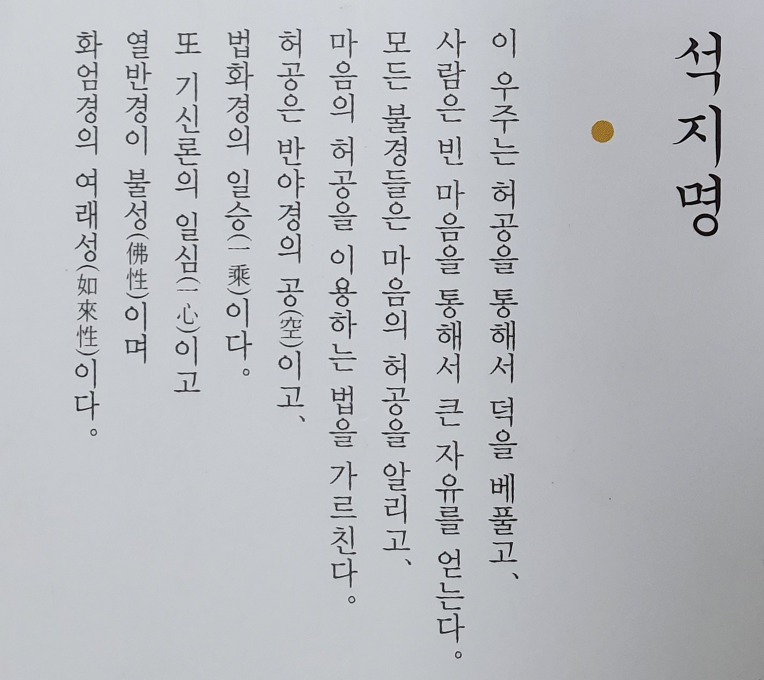 석지명
이 우주는 허공을 통해서 덕을 베풀고、
사람은 빈 마음을 통해서 큰 자유를 얻는다。
모든 불경들은 마음의 허공을 알리고、
마음의 허공을 이용하는 법을 가르친다。
허공은 반야경의 공(空)이고、
법화경의 일승(一乘)이다。
또 기신론의 일심(一心)이고
열반경이 불성(佛性)이며
화엄경의 여래성(如來性)이다。